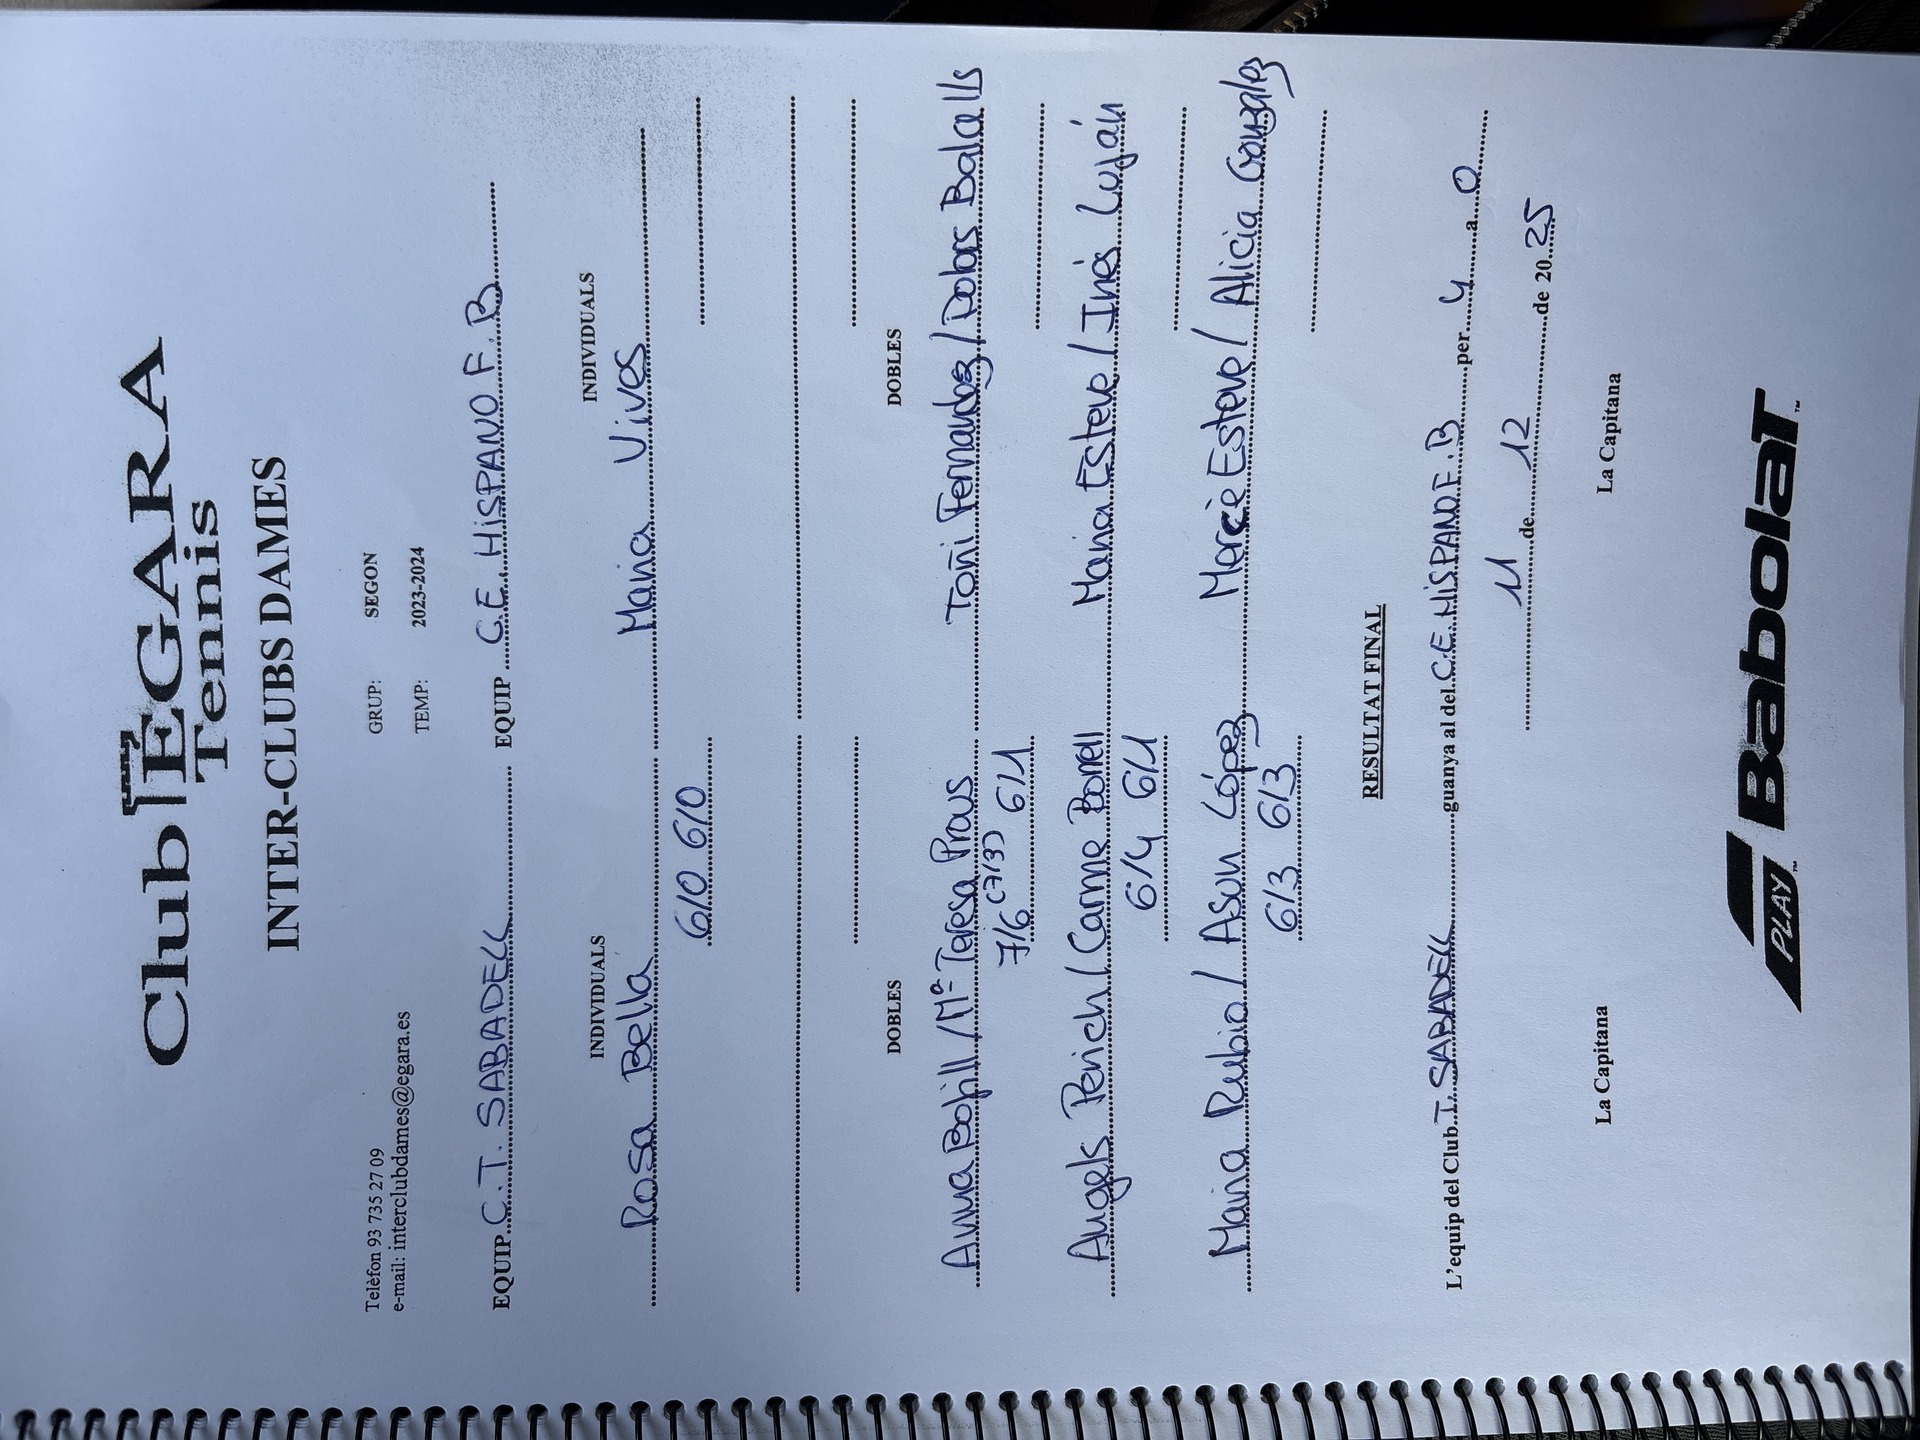 Club EGARA
Tennis
INTER-CLUBS DAMES
Telèfon 93 735 27 09
e-mail: interclubdames@egara.es
GRUP: SEGON
TEMP: 2023-2024
EQUIP C.T. SABADELL EQUIP C.E. HISPANO F. B
INDIVIDUALS INDIVIDUALS
Rosa Bella Maria Vives
6/0 6/0
DOBLES DOBLES
Anna Bofill / Mª Teresa Prous Toñi Fernandez / Dolors Balcells
7/6 (7/3) 6/1
Angels Perich / Carme Borrell Maria Esteve / Inés Luján
6/4 6/1
Maria Rubio / Asun López Mercè Esteve / Alicia Gonzalez
6/3 6/3
RESULTAT FINAL
L'equip del Club T. SABADELL guanya al del C.E. HISPANO F. B per 4 a 0
11 de 12 de 20 25
La Capitana La Capitana
PLAY Babolat